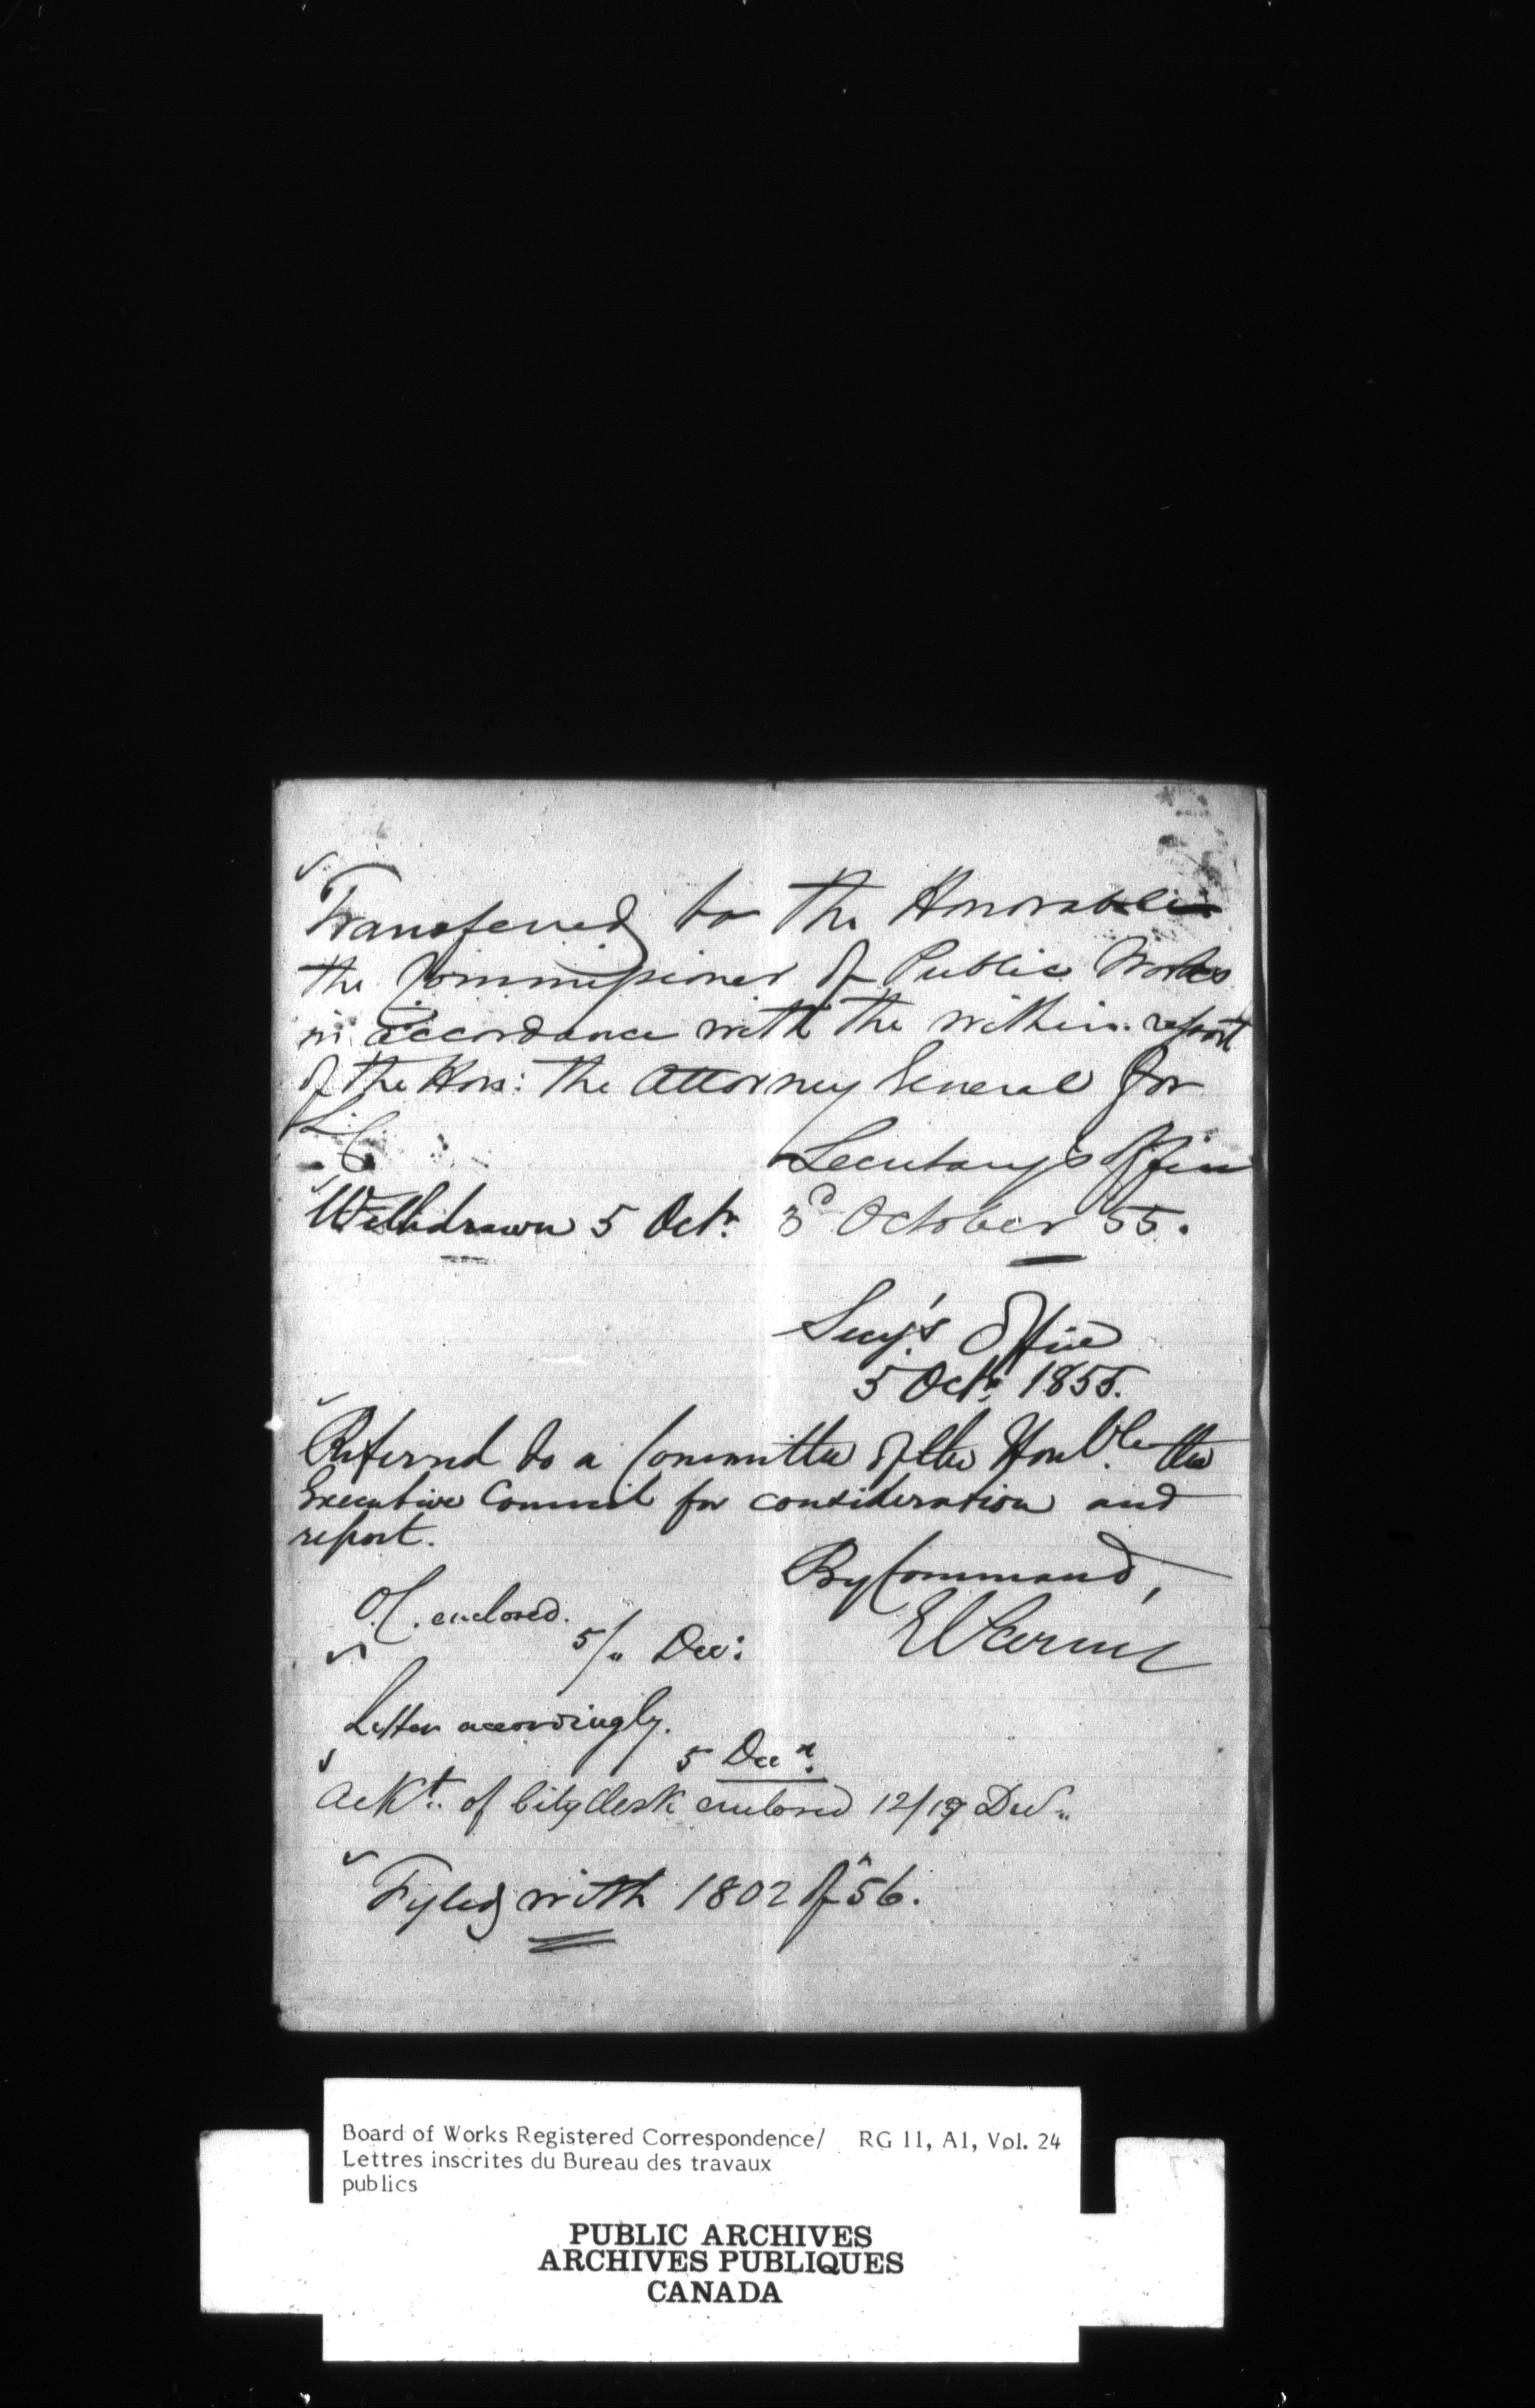 Transferred to the Honorable
the Commissioner of Public Works
in accordance with the within report
of the Hon: the Attorney General for
L.C.
Secretary's Office
Withdrawn 5 Octr. 3d October 55.
Secy's Office
5 Octr. 1855.
Referred to a Committee of the Honble. the
Executive Council for consideration and
report.
By Command,
O.C. enclosed.
5/" Dec:
Letter accordingly.
5 Decr.
Ackt. of City Clerk enclosed 12/19 Decr
Fyled with 1802 of 56.
Board of Works Registered Correspondence/ RG 11, A1, Vol. 24
Lettres inscrites du Bureau des travaux
publics
PUBLIC ARCHIVES
ARCHIVES PUBLIQUES
CANADA